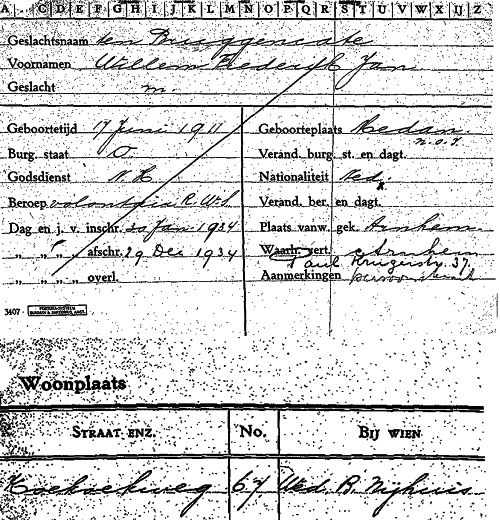 A . . C D E F G H I J K L M N O P Q R S T U V W X IJ Z
Geslachtsnaam ten Bruggencate
Voornamen Willem Frederik Jan
Geslacht m.
Geboortetijd 17 Juni 1911 Geboorteplaats
Burg. staat O Verand. burg. st. en dagt.
Godsdienst N.H. Nationaliteit Ned.
Beroep volontair R. Verand. ber. en dagt.
Dag en j. v. inschr. 20 Jan 1934 Plaats vanw. gek. Arnhem
„ „ „ „ afschr. 29 Dec 1934 Waarh. vert. Arnhem
Paul Krugerstr. 37.
„ „ „ „ overl. Aanmerkingen
3407
Woonplaats
STRAAT ENZ. No. BIJ WIEN
67 Wed. B. Nijhuis